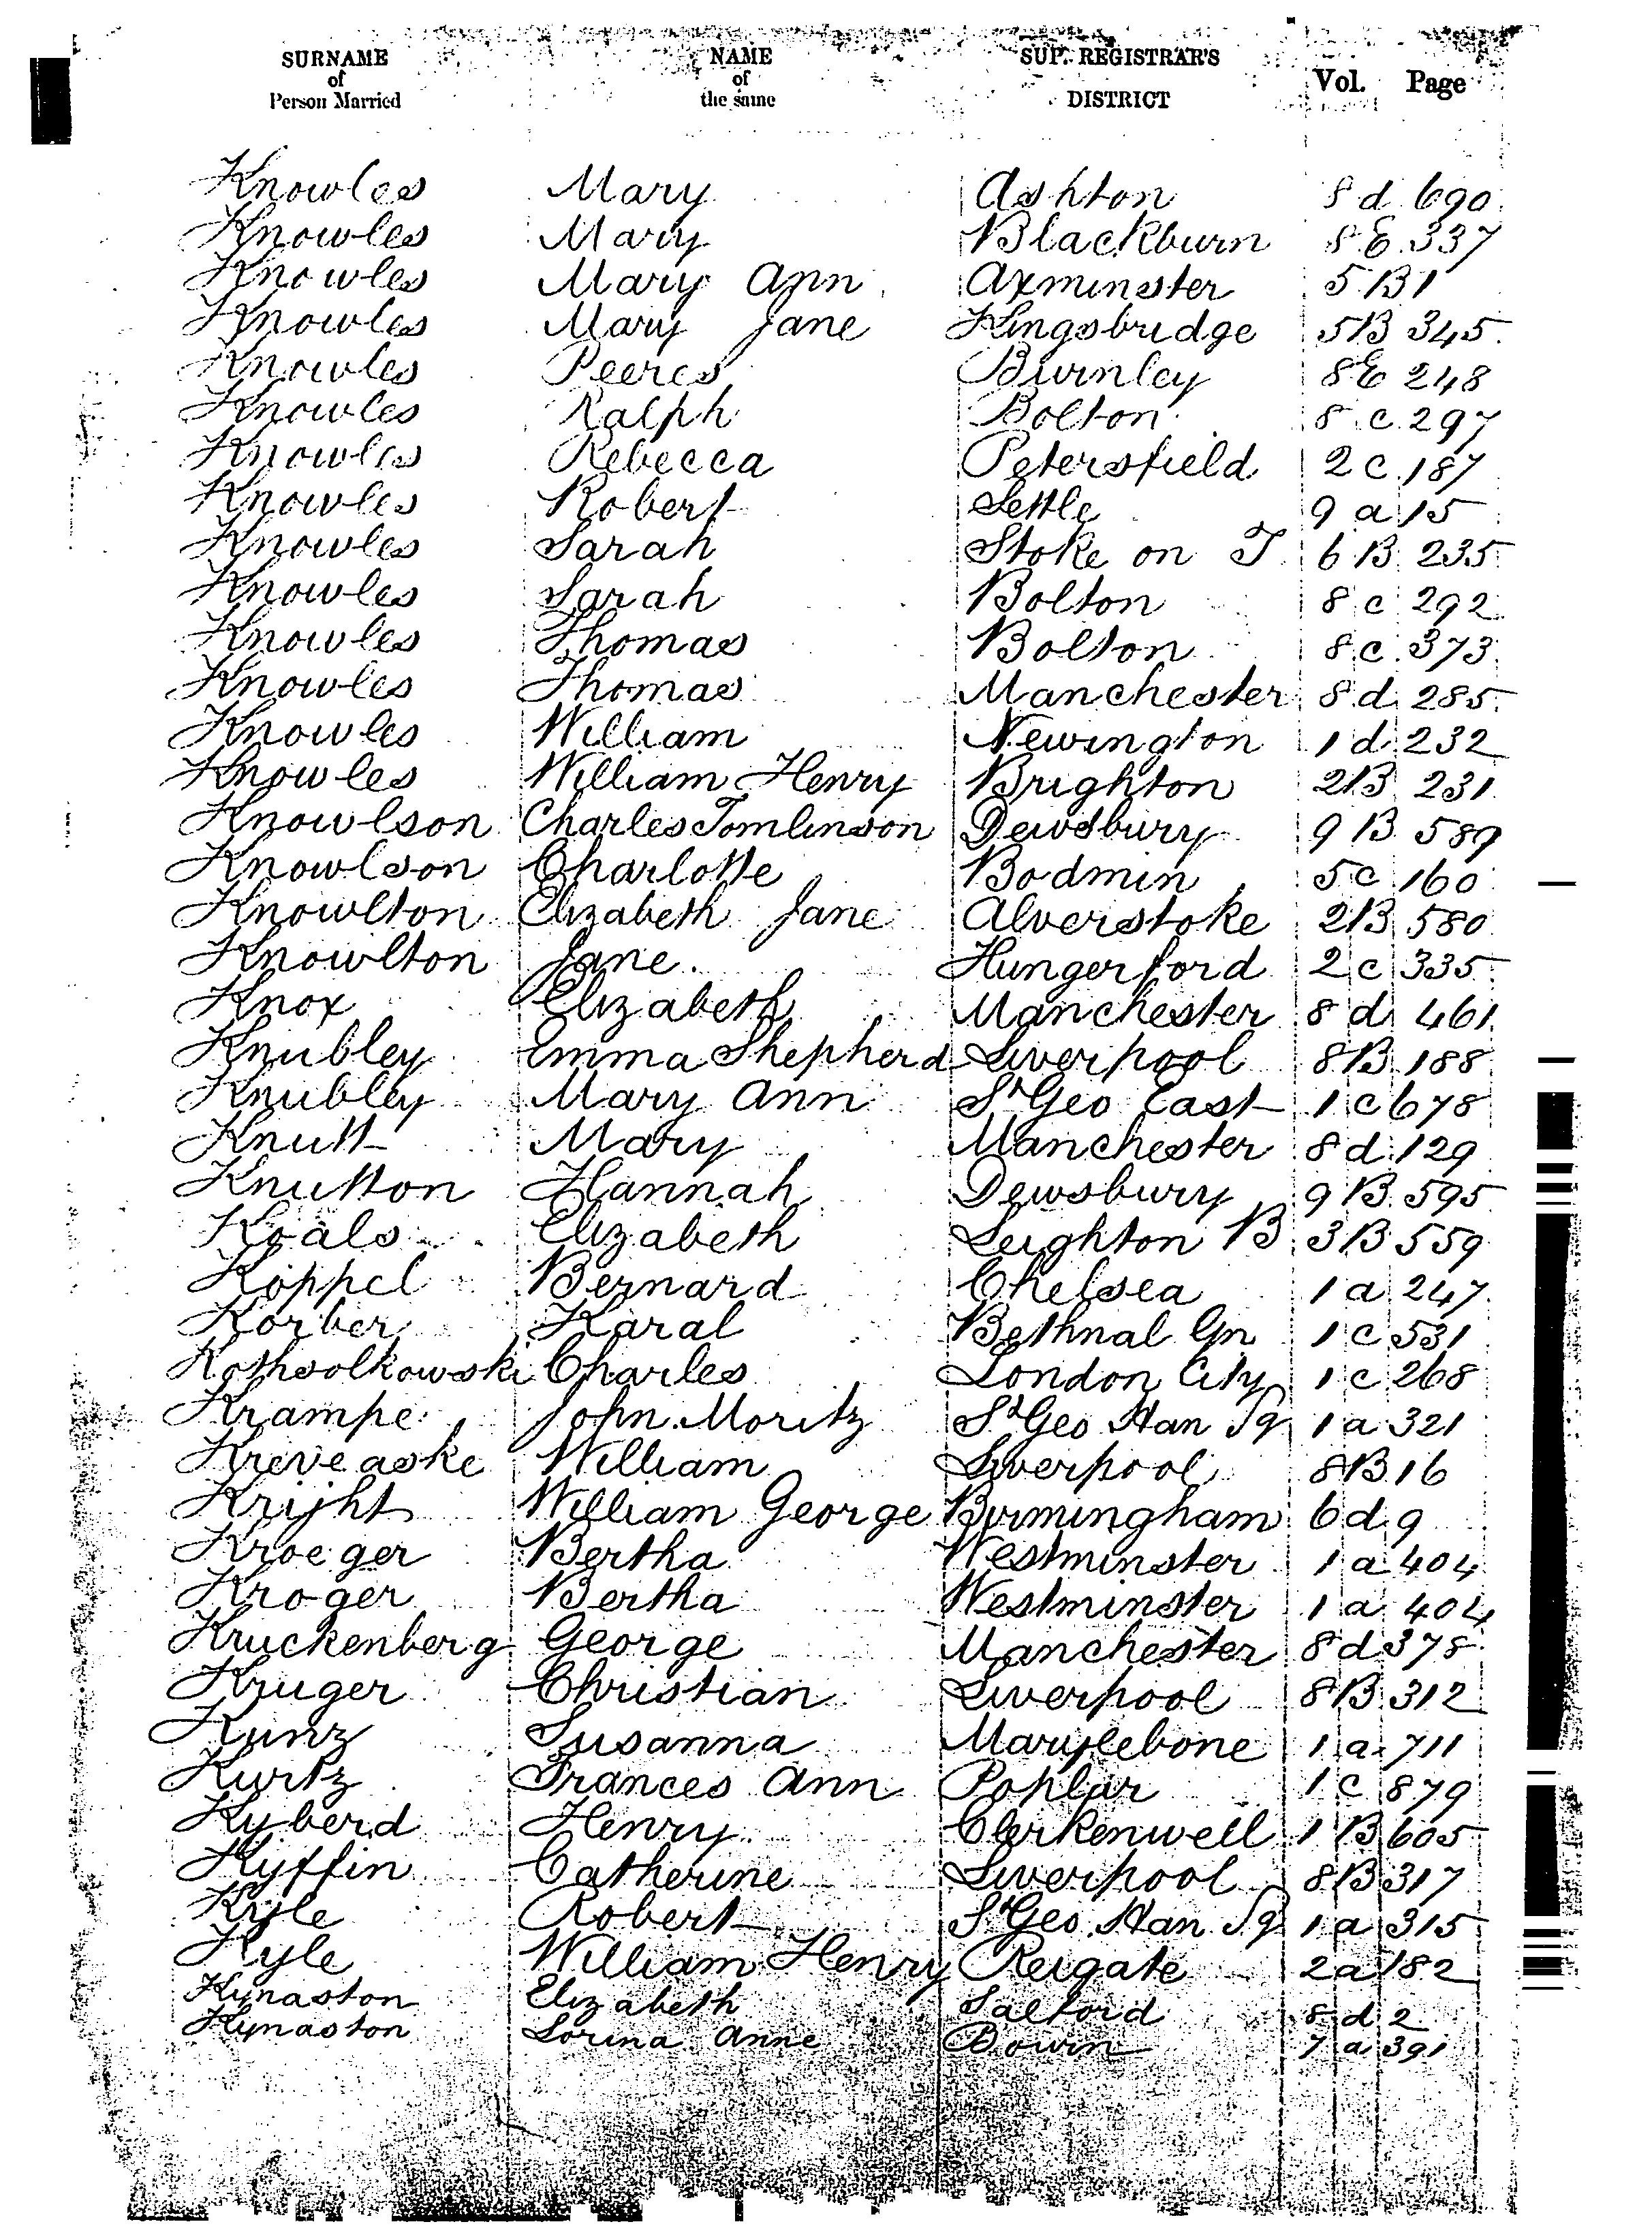 SURNAME of Person Married NAME of the same SUP. REGISTRAR'S DISTRICT Vol. Page
Knowles Mary Ashton 8 d 690
Knowles Mary Blackburn 8 E 337
Knowles Mary Ann Axminster 5 B 1
Knowles Mary Jane Kingsbridge 5 B 345
Knowles Peeres Burnley 8 E 248
Knowles Ralph Bolton 8 c 297
Knowles Rebecca Petersfield 2 c 187
Knowles Robert Settle 9 a 15
Knowles Sarah Stoke on T 6 B 235
Knowles Sarah Bolton 8 c 292
Knowles Thomas Bolton 8 c 373
Knowles Thomas Manchester 8 d 285
Knowles William Newington 1 d 232
Knowles William Henry Brighton 2 B 231
Knowlson Charles Tomlinson Dewsbury 9 B 589
Knowlson Charlotte Bodmin 5 c 160
Knowlton Elizabeth Jane Alverstoke 2 B 580
Knowlton Jane Hungerford 2 c 335
Knox Elizabeth Manchester 8 d 461
Knubley Emma Shepherd Liverpool 8 B 188
Knubley Mary Ann St Geo East 1 c 678
Knutt Mary Manchester 8 d 129
Knutton Hannah Dewsbury 9 B 595
Koals Elizabeth Leighton B 3 B 559
Koppel Bernard Chelsea 1 a 247
Korber Karal Bethnal Gn 1 c 531
Kothsolkowski Charles London City 1 c 268
Krampe John Moritz St Geo Han Sq 1 a 321
Kreveaske William Liverpool 8 B 16
Krijht William George Birmingham 6 d 9
Kroeger Bertha Westminster 1 a 404
Kroger Bertha Westminster 1 a 404
Kruckenberg George Manchester 8 d 378
Kruger Christian Liverpool 8 B 312
Kunz Susanna Marylebone 1 a 711
Kurtz Frances Ann Poplar 1 c 879
Kyberd Henry Clerkenwell 1 B 605
Kyffin Catherine Liverpool 8 B 317
Kyle Robert St Geo Han Sq 1 a 315
Kyle William Henry Reigate 2 a 182
Kynaston Elizabeth Salford 8 d 2
Kynaston Lorina Anne 7 a 391